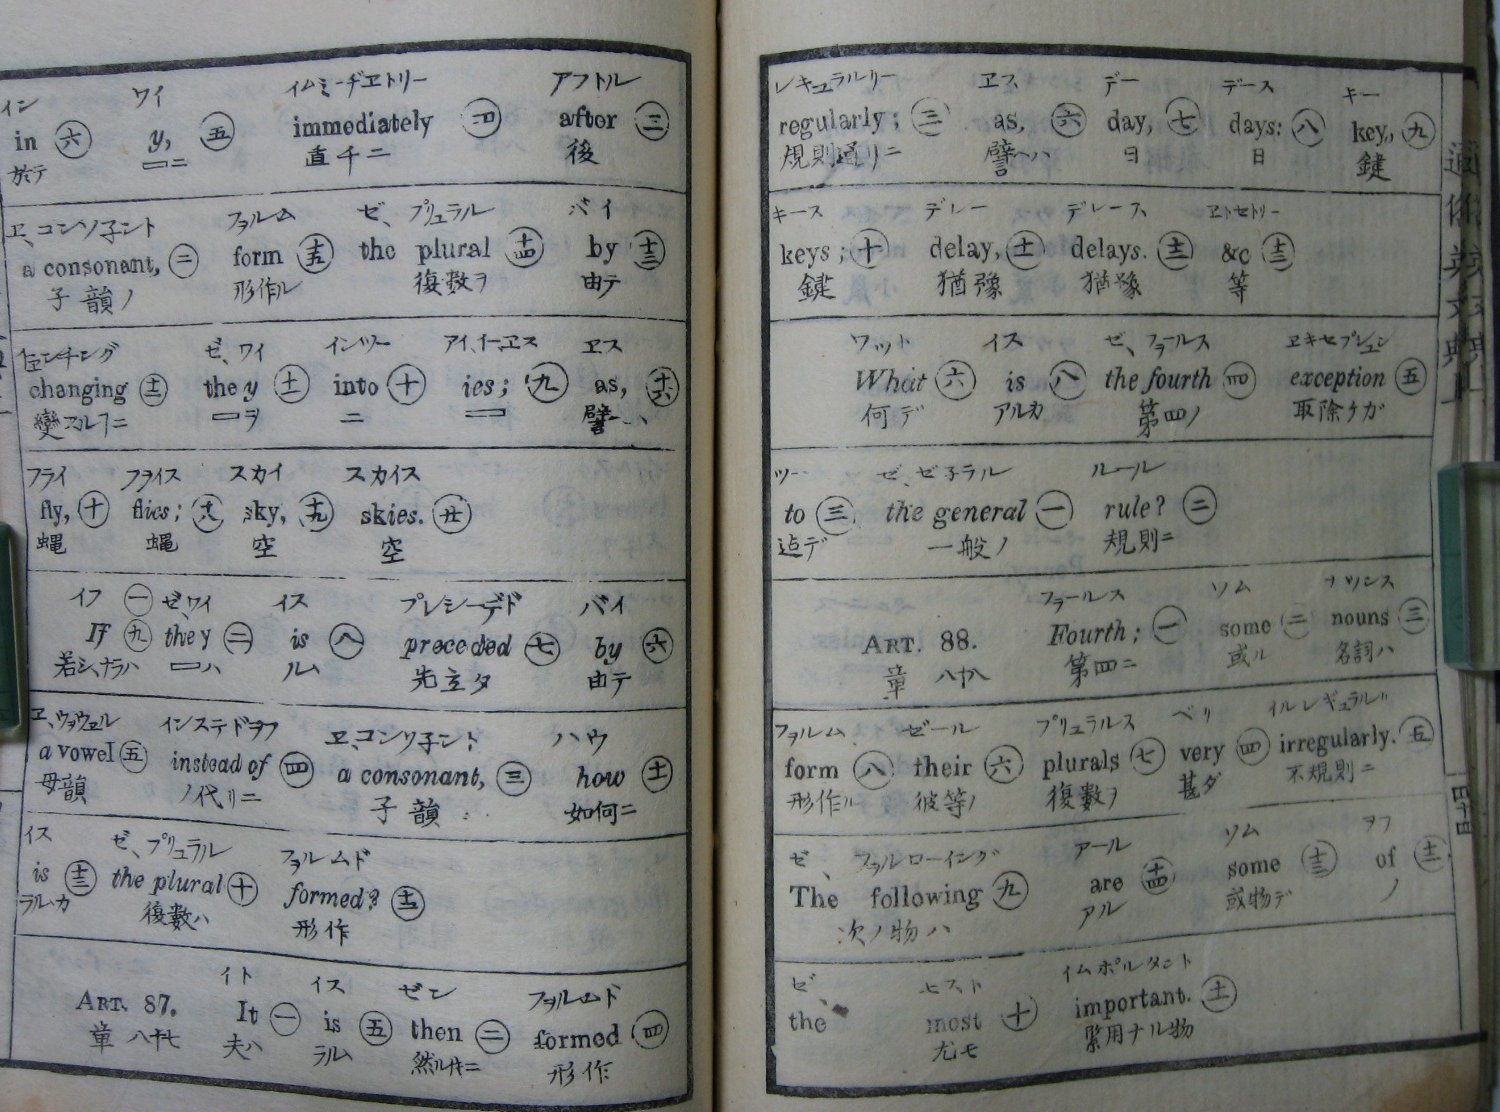 イン ワイ イムミーヂヱトリー アフトル
in 六 y, 五 immediately 四 after 三
於テ 一ニ 直チニ 後
ヱ、コンソ子ント フヲルム ゼ、プリュラル バイ
a consonant, 二 form 十五 the plural 十四 by 十三
子韻ノ 形作ル 復数ヲ 由テ
ゼ、ワイ インツー アイ、イーヱス ヱス
changing 十二 the y 十一 into 十 ies; 九 as, 十六
ヲ ニ 譬ヘハ
フライ フライス スカイ スカイス
fly, 十 flies; 十八 sky, 十九 skies. 廿
蝿 蝿 空 空
イフ 一 ゼ、ワイ イス プレシーデド バイ
If 九 the y 二 is 八 preceded 七 by 六
若シ ハ ルム 先立タ 由テ
ヱ、ヴヲウヱル インステドヲフ ヱ、コンソ子ント ハウ
a vowel 五 instead of 四 a consonant, 三 how 十一
母韻 ノ代リニ 子韻 如何ニ
イス ゼ、プリュラル フヲルムド
is 十三 the plural 十 formed? 十二
ラルカ 復数ハ 形作
イト イス ゼン フヲルムド
ART. 87. It 一 is 五 then 二 formed 四
章 八十七 夫ハ ラルム 然ル 形作
レギュラルリー ヱス デー デース キー
regularly; 三 as, 六 day, 七 days: 八 key, 九
規則通リニ 譬ヘハ 日 日 鍵
キース デレー デレース ヱトセトリー
keys; 十 delay, 十一 delays. 十二 &c 十三
鍵 猶豫 猶豫 等
ワット イス ゼ、フヲールス ヱキセプシュン
What 六 is 八 the fourth 四 exception 五
何デ アルカ 第四ノ 取除ケガ
ツー ゼ、ゼ子ラル ルール
to 三 the general 一 rule? 二
一般ノ 規則ニ
フヲールス ソム ナウンス
ART. 88. Fourth; 一 some 二 nouns 三
章 八十八 第四ニ 或ル 名詞ハ
フヲルム ゼール プリュラルス ベリ イルレギュラルリ
form 八 their 六 plurals 七 very 四 irregularly. 五
形作ル 彼等ノ 復数ヲ 甚ダ 不規則ニ
ゼ、 フヲルローイング アール ソム ヲフ
The following 九 are 十四 some 十三 of 十二
次ノ物ハ アル 或物デ ノ
ゼ、 モスト イムポルタント
the most 十 important. 十一
尤モ 緊用ナル物